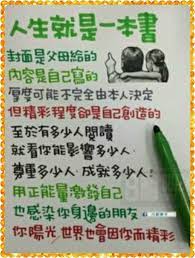 人生就是一本書
封面是父母給的
內容是自己寫的
厚度可能不完全由本人決定
但精彩程度卻是自己創造的
至於有多少人閱讀
就看你能影響多少人.
尊重多少人.成就多少人!
用正能量激發自己
也感染你身邊的朋友
你陽光,世界也會因你而精彩